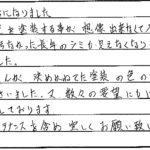 になりました
を塗装する事が想像出来して
なかった長年のシミが見えなくなり
した。
んが決めかねてた塗装の色の
さいました。又数々の要望にも
しております
ナンスも含め宜しくお願い致し